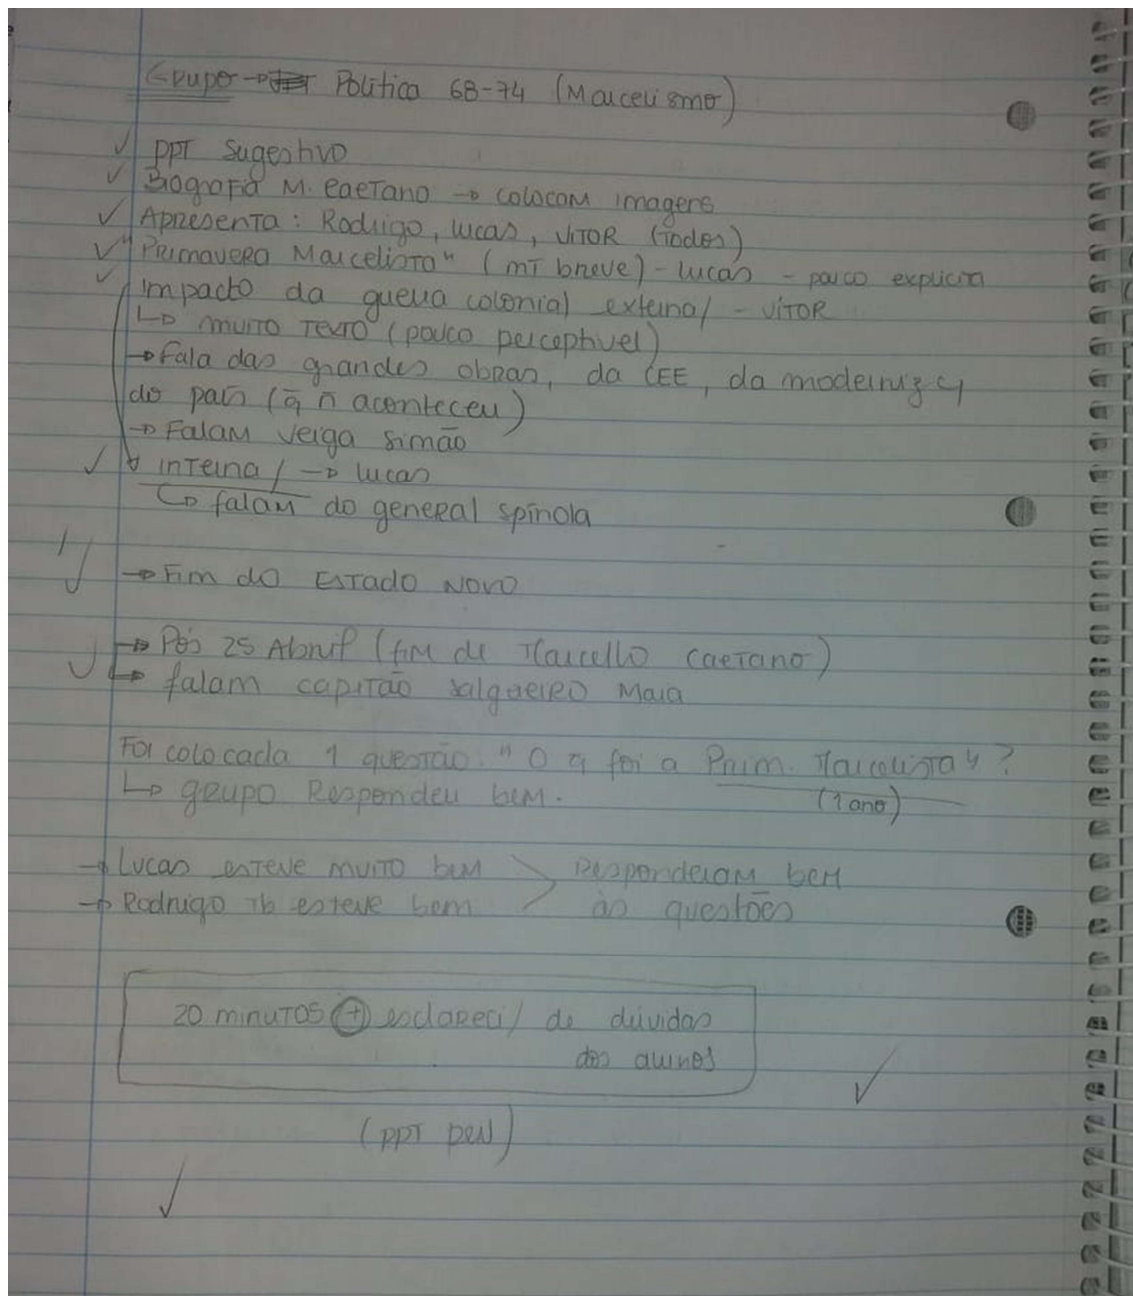 Grupo → Politica 68-74 (Marcelismo)
✓ PPT sugestivo
✓ Biografia M. Caetano → colocam imagens
✓ Apresenta: Rodrigo, Lucas, Vitor (todos)
✓ "Primavera Marcelista" (mt breve) - Lucas - pouco explicita
✓ Impacto da guerra colonial externa/ - Vitor
↳ muito texto (pouco perceptível)
→ Fala das grandes obras, da CEE, da moderniz
do país (q̄ ñ aconteceu)
→ Falam Veiga Simão
✓ interna/ → Lucas
↳ falam do general Spínola
✓ → Fim do Estado Novo
✓ → Pós 25 Abril (fim de Marcello Caetano)
↳ falam capitão Salgueiro Maia
Foi colocada 1 questão: "O q̄ foi a Prim. Marcelista"?
↳ grupo Respondeu bem. (1 ano)
→ Lucas esteve muito bem > Responderam bem
→ Rodrigo tb esteve bem às questões
20 minutos (+) esclareci/ de dúvidas
dos alunos
✓
(PPT pen)
✓